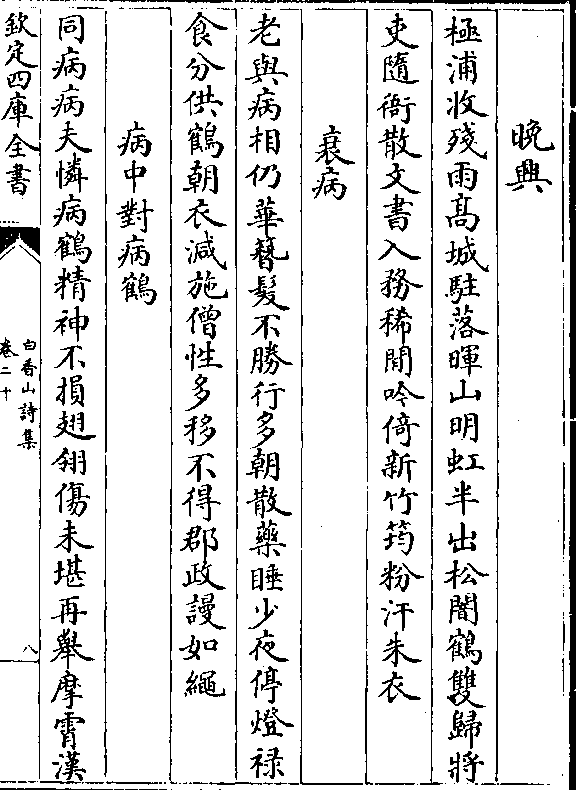 晩興
極浦收殘雨髙城駐落暉山明虹半出松闇鶴雙歸將
吏隨衙散文書入務稀閒吟倚新竹筠粉汗朱衣
衰病
老與病相仍華簪髪不勝行多朝散藥睡少夜停燈祿
食分供鶴朝衣減施僧性多移不得郡政謾如繩
病中對病鶴
同病病夫憐病鶴精神不損翅翎傷未堪再舉摩霄漢
欽定四庫全書
白香山詩集
卷二十
八